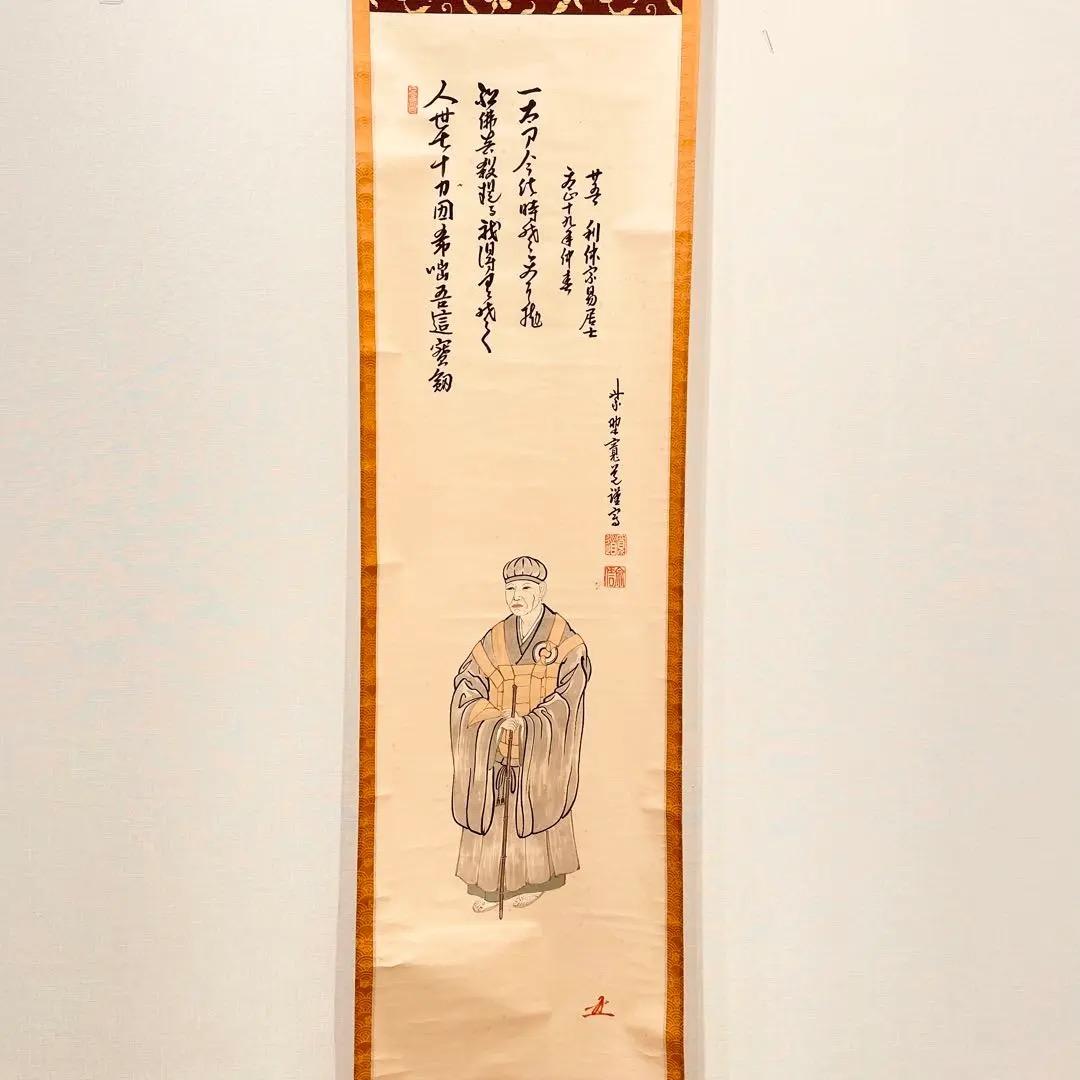 人世七十力囲希咄吾這寳剱
祖佛共殺提る我得具足の
一太刀今此時そ天に抛
天正十九年仲春
廿五日 利休宗易居士
紫野寛道謹写